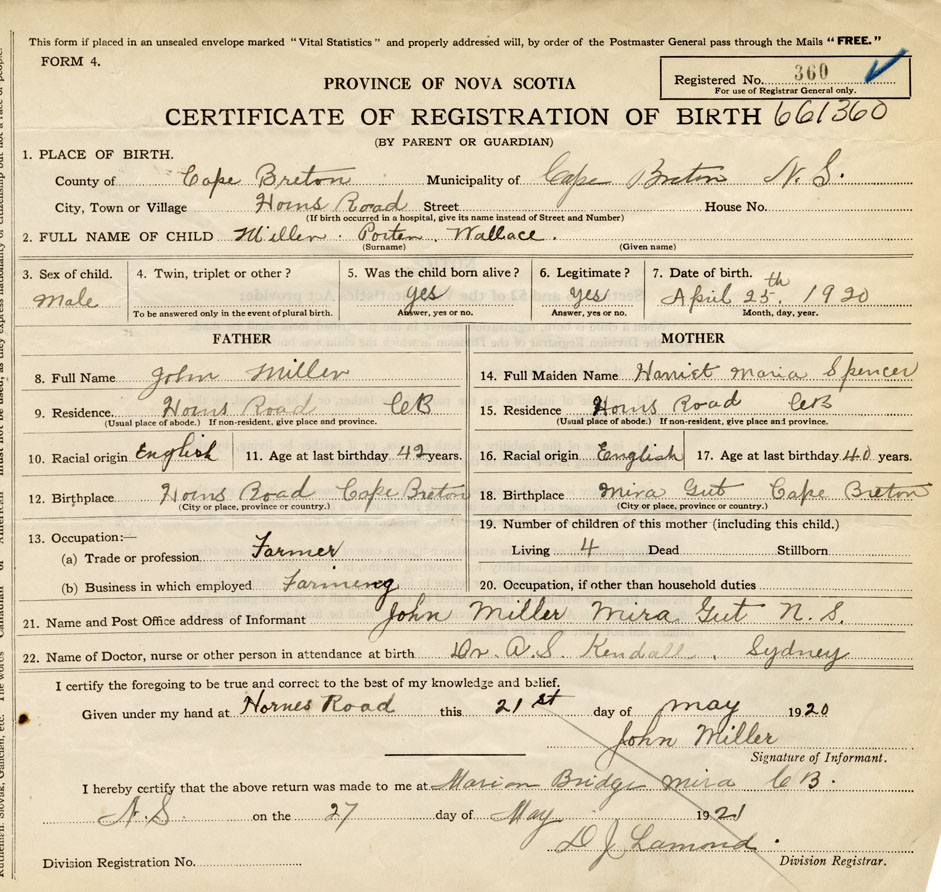 This form if placed in an unsealed envelope marked "Vital Statistics" and properly addressed will, by order of the Postmaster General pass through the Mails "FREE."
FORM 4.
Registered No. 360
For use of Registrar General only.
PROVINCE OF NOVA SCOTIA
CERTIFICATE OF REGISTRATION OF BIRTH 661360
(BY PARENT OR GUARDIAN)
1. PLACE OF BIRTH.
County of Cape Breton Municipality of Cape Breton N. S.
City, Town or Village Horns Road Street House No.
(If birth occurred in a hospital, give its name instead of Street and Number)
2. FULL NAME OF CHILD Miller. Porter. Wallace.
(Surname) (Given name)
3. Sex of child. Male
4. Twin, triplet or other?
To be answered only in the event of plural birth.
5. Was the child born alive? yes
Answer, yes or no.
6. Legitimate? Yes
Answer, yes or no.
7. Date of birth. April 25th. 1920
Month, day, year.
FATHER
8. Full Name John Miller
9. Residence. Horns Road CB
(Usual place of abode.) If non-resident, give place and province.
10. Racial origin English 11. Age at last birthday 42 years.
12. Birthplace Horns Road Cape Breton
(City or place, province or country.)
13. Occupation:—
(a) Trade or profession Farmer
(b) Business in which employed Farmeng
MOTHER
14. Full Maiden Name Harriet Maria Spencer
15. Residence Horns Road CB
(Usual place of abode.) If non-resident, give place and province.
16. Racial origin English 17. Age at last birthday 40 years.
18. Birthplace Mira Gut Cape Breton
(City or place, province or country.)
19. Number of children of this mother (including this child.)
Living 4 Dead Stillborn
20. Occupation, if other than household duties
21. Name and Post Office address of Informant John Miller Mira Gut N. S.
22. Name of Doctor, nurse or other person in attendance at birth Dr. A. S. Kendall, Sydney
I certify the foregoing to be true and correct to the best of my knowledge and belief.
Given under my hand at Hornes Road this 21st day of may 1920
John Miller
Signature of Informant.
I hereby certify that the above return was made to me at Marion Bridge mira CB.
N.S on the 27 day of May 1921
D J Lamond.
Division Registrar.
Division Registration No.